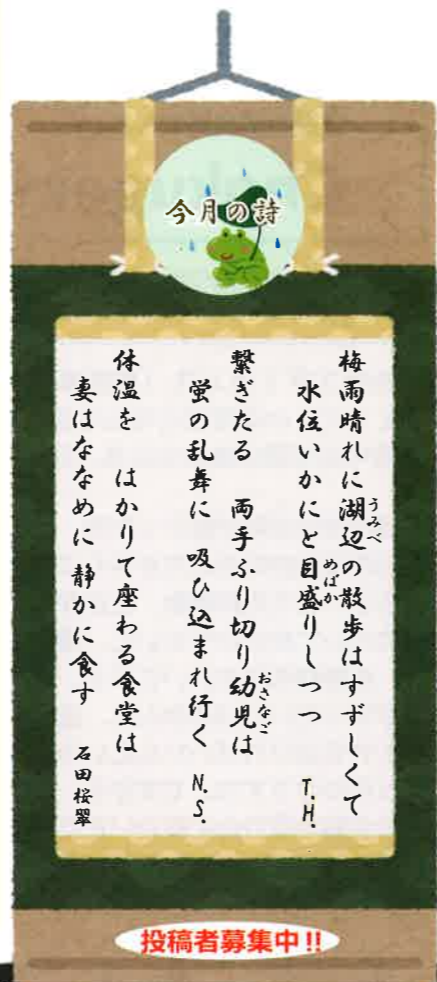 今月の詩
梅雨晴れに湖辺の散歩はすずしくて
うみべ
水位いかにと目盛りしつつ T.H.
めばか
繋ぎたる 両手ふり切り幼児は
おさなご
蛍の乱舞に 吸ひ込まれ行く N.S.
体温を はかりて座わる食堂は
妻はななめに 静かに食す 石田桜翠
投稿者募集中!!